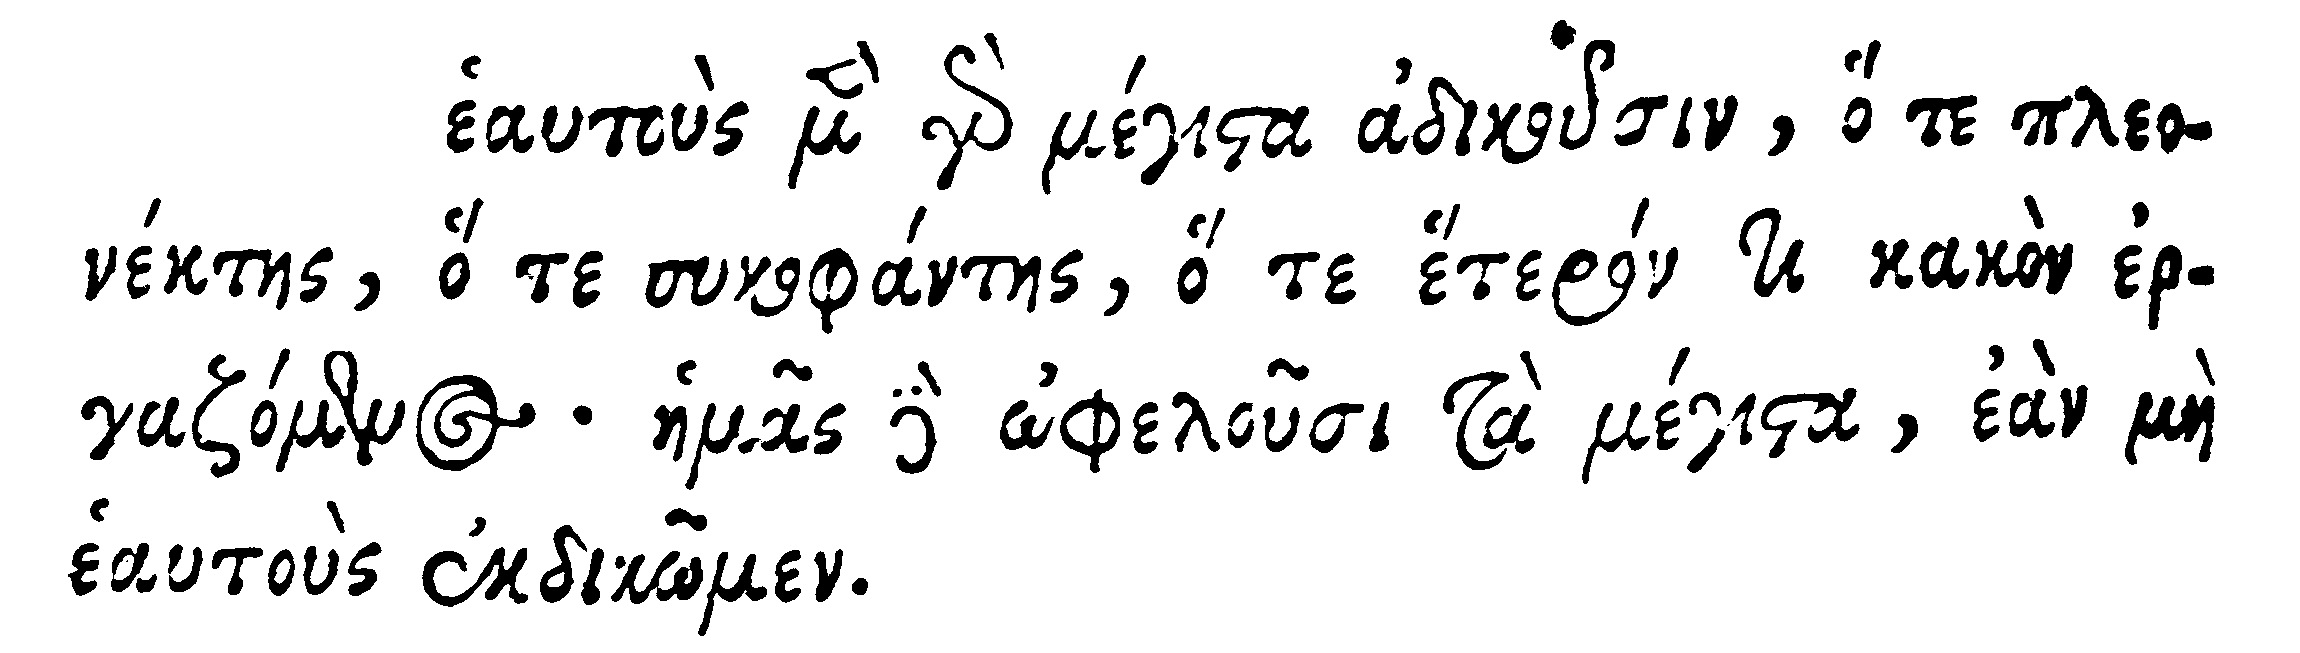 ἑαυτοὺς μὲν γὰρ μέγιστα ἀδικοῦσιν, ὅ τε πλεο-
νέκτης, ὅ τε συκοφάντης, ὅ τε ἕτερόν τι κακὸν ἐρ-
γαζόμενος· ἡμᾶς δὲ ὠφελοῦσι τὰ μέγιστα, ἐὰν μὴ
ἑαυτοὺς ἐκδικῶμεν.